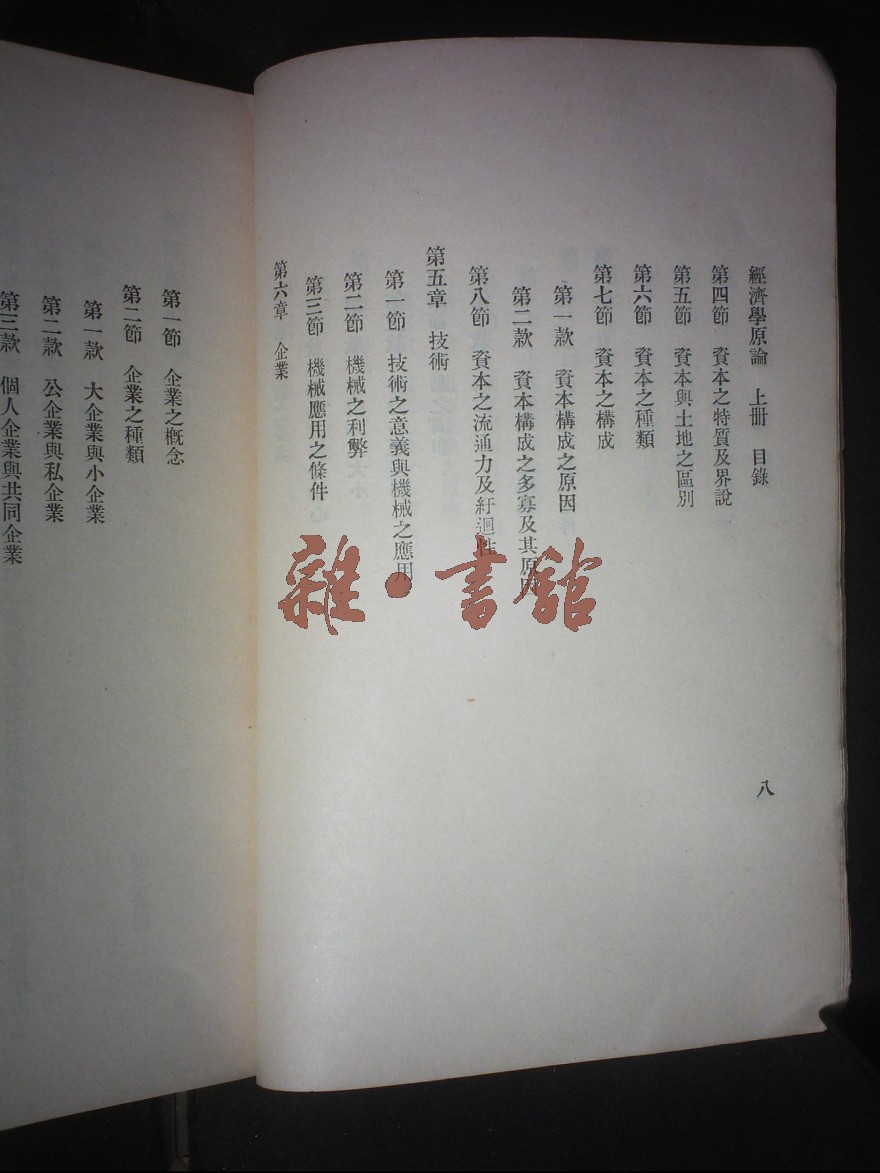 經濟學原論 上册 目錄
第四節 資本之特質及界說
第五節 資本與土地之區別
第六節 資本之種類
第七節 資本之構成
第一款 資本構成之原因
第二款 資本構成之多寡及其原因
第八節 資本之流通力及紆迴性
第五章 技術
第一節 技術之意義與機械之應用
第二節 機械之利弊
第三節 機械應用之條件
第六章 企業
八
第一節 企業之概念
第二節 企業之種類
第一款 大企業與小企業
第二款 公企業與私企業
第三款 個人企業與共同企業
雜·書館